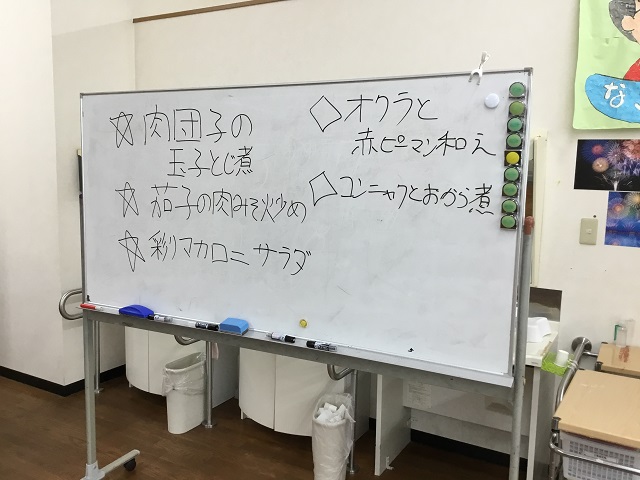 ☆肉団子の
玉子とじ煮
☆茄子の肉みそ炒め
☆彩りマカロニサラダ
◇オクラと
赤ピーマン和え
◇コンニャクとおから煮
な